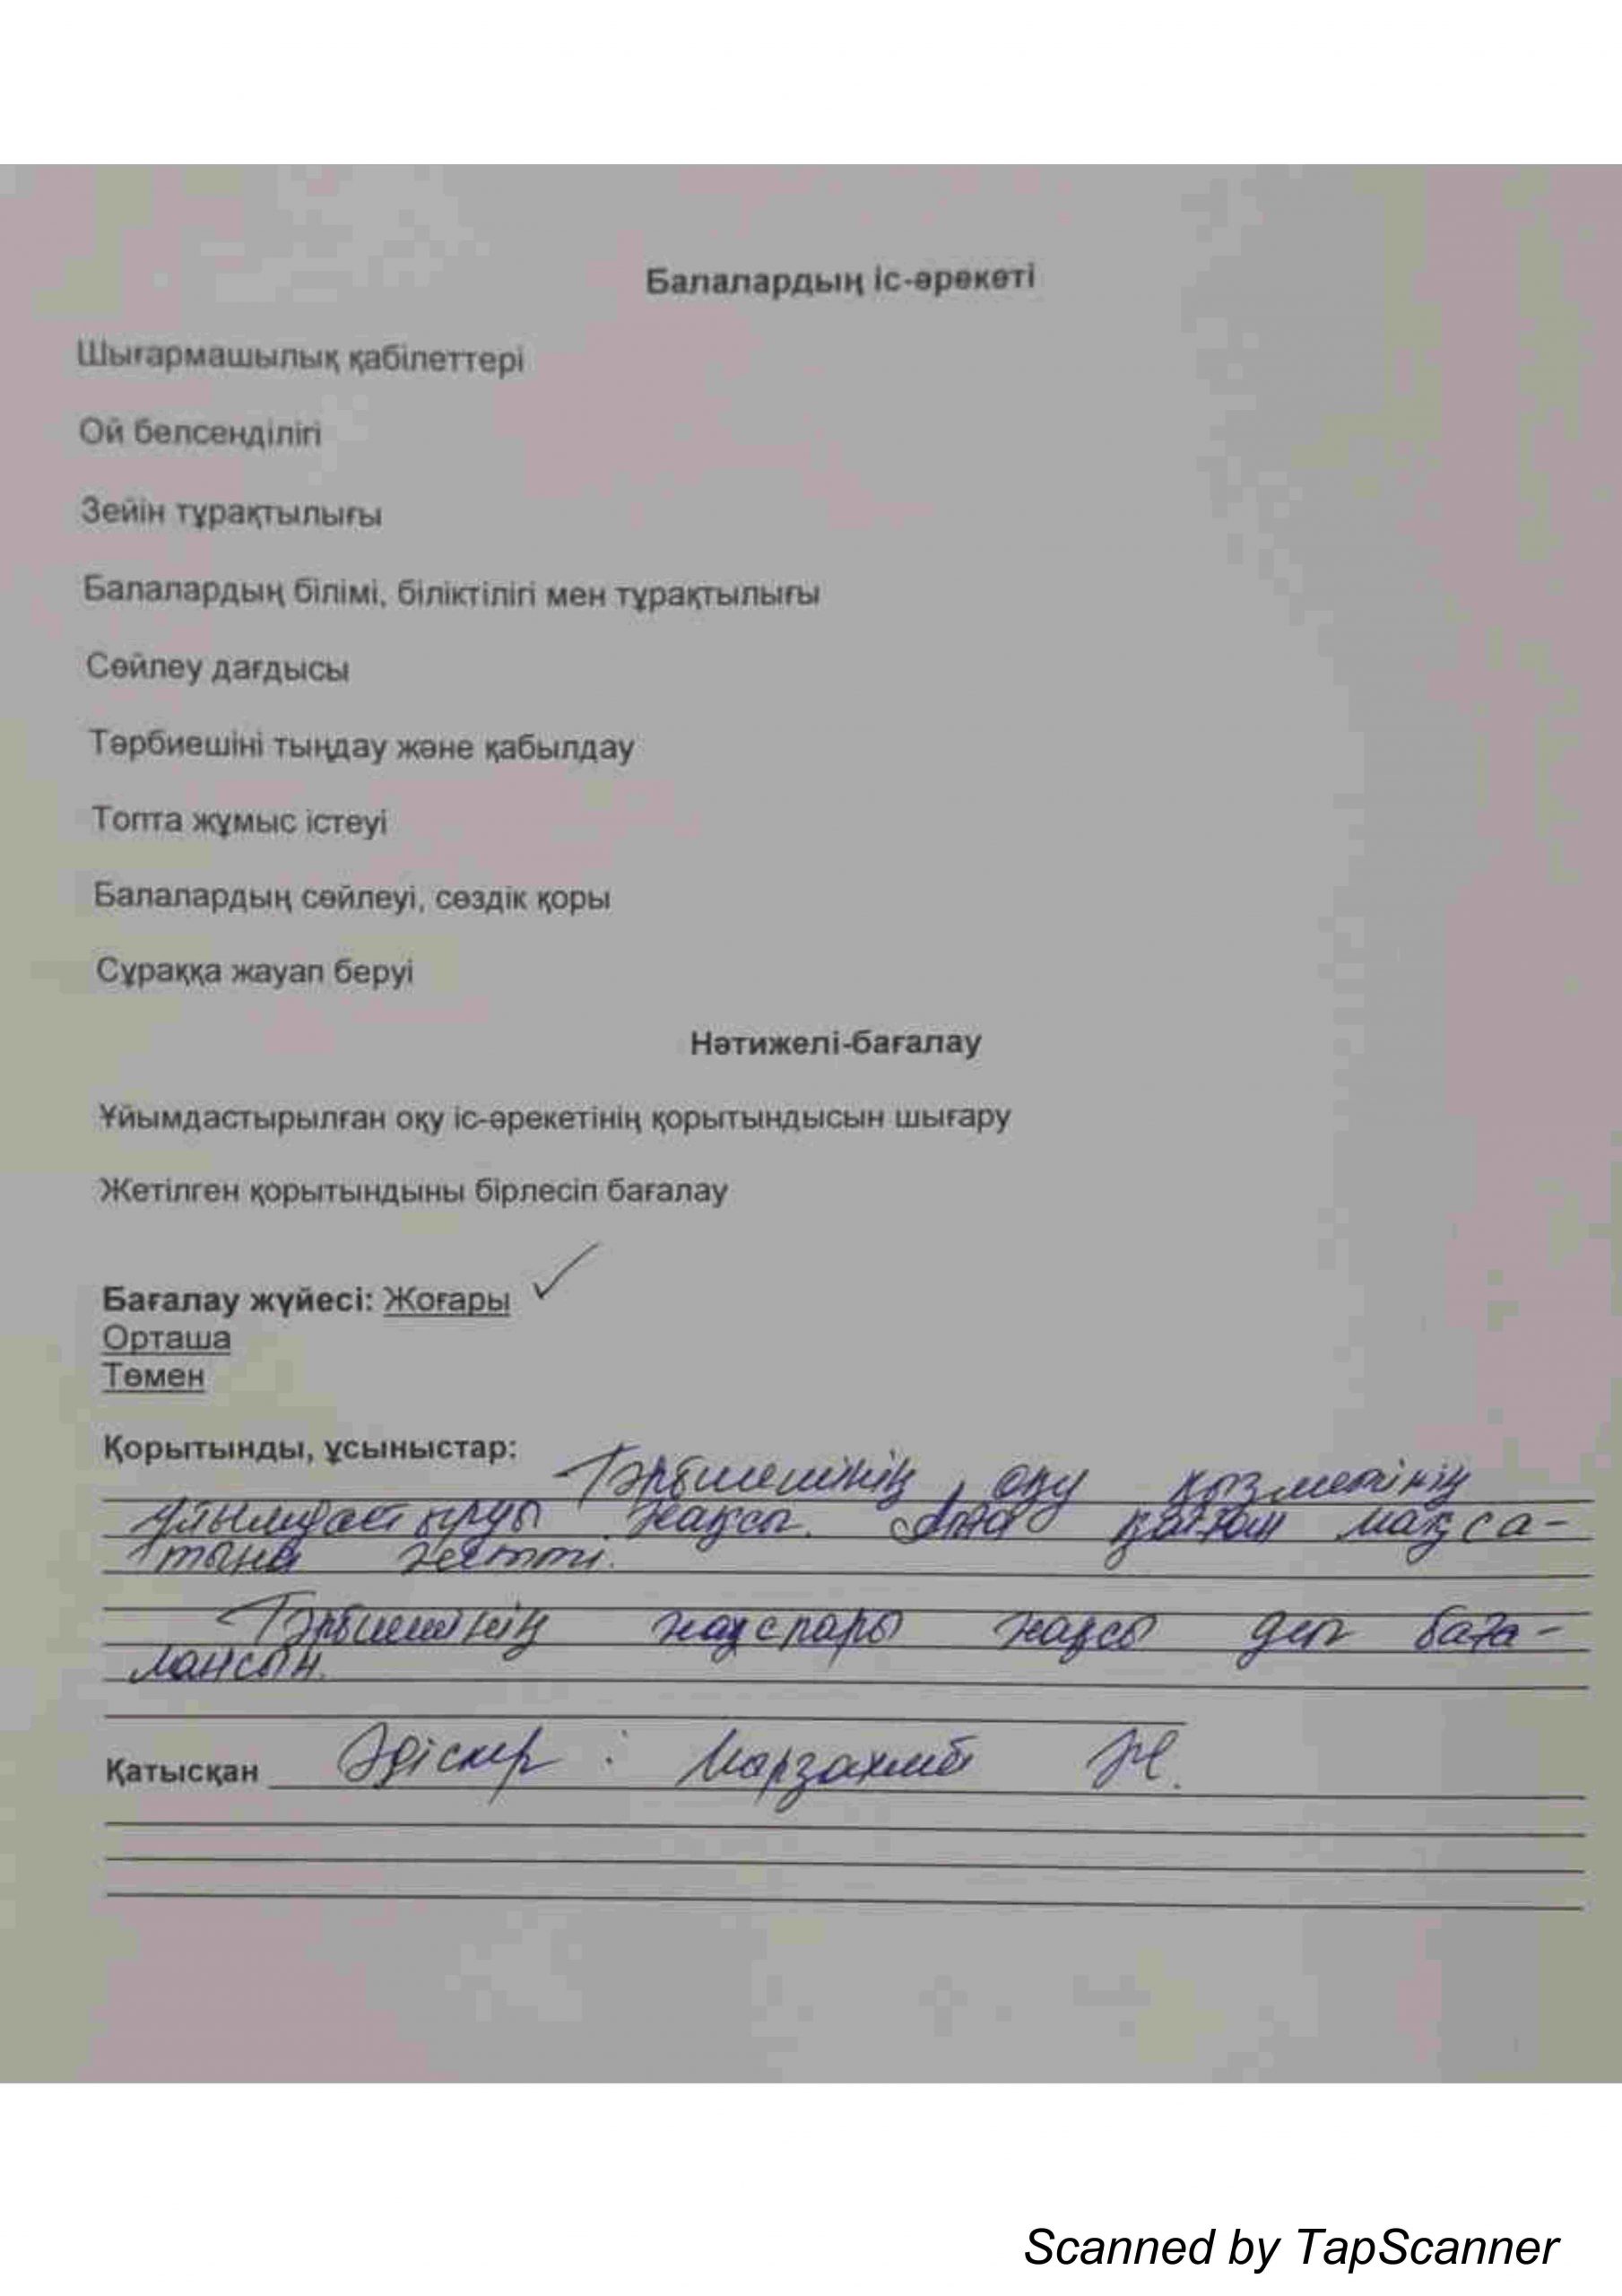 Балалардың іс-әрекеті
Шығармашылық қабілеттері
Ой белсенділігі
Зейін тұрақтылығы
Балалардың білімі, біліктілігі мен тұрақтылығы
Сөйлеу дағдысы
Тәрбиешіні тыңдау және қабылдау
Топта жұмыс істеуі
Балалардың сөйлеуі, сөздік қоры
Сұраққа жауап беруі
Нәтижелі-бағалау
Ұйымдастырылған оқу іс-әрекетінің қорытындысын шығару
Жетілген қорытындыны бірлесіп бағалау
Бағалау жүйесі: Жоғары ✓
Орташа
Төмен
Қорытынды, ұсыныстар:
Тәрбиешінің оқу қызметінің
ұйымдастыруы жақсы. Алға қойған мақса-
тына жетті.
Тәрбиешінің жоспары жақсы деп баға-
лансын.
Қатысқан Әдіскер: Ж.
Scanned by TapScanner